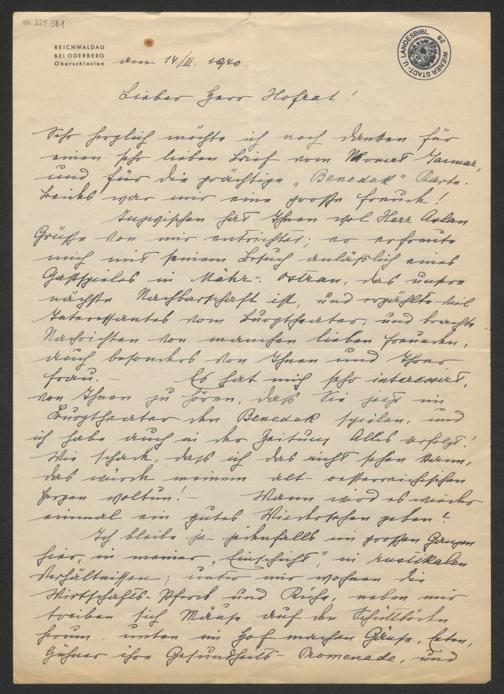 IN 225 581
REICHWALDAU
BEI ODERBERG
Oberschlesien
am 14/II. 1940
WIENER STADT- U. LANDESBIBL.
Lieber Herr Hofrat!
Sehr herzlich möchte ich noch danken für
einen sehr lieben Brief vom Monat Jannar,
und für die prächtige „Benedek" Karte.
Beides war mir eine grosse Freude!
Inzwischen hat Ihnen wol Herr Aslan
Grüsse von mir entrichtet; er erfreute
mich mit seinem Besuch anlässlich eines
Gastspieles in Mähr.- Ostrau, das unsre
nächste Nachbarschaft ist, und erzählte viel
Interessantes vom Burgtheater, und brachte
Nachrichten von manchen lieben Freunden,
auch besonders von Ihnen und Ihrer
Frau. — Es hat mich sehr interessiert,
von Ihnen zu hören, dass Sie jetzt im
Burgtheater den Benedek spielen, und
ich habe auch in der Zeitung Alles verfolgt!
Wie schade, dass ich das nicht sehen kann,
das würde meinem alt-oesterreichischen
Herzen woltun! Wann wird es wieder
einmal ein gutes Wiedersehen geben?
Ich bleibe ja jedenfalls im grossen Ganzen
hier, in meiner „Einschicht", in rustikalen
Verhältnissen; unter mir wohnen die
Wirtschafts-Pferde und Kühe, neben mir
treiben sich Mäuse auf den Schüttböden
herum, unten im Hof machen Gänse, Enten,
Hühner ihre Gesundheits-Promenade, und